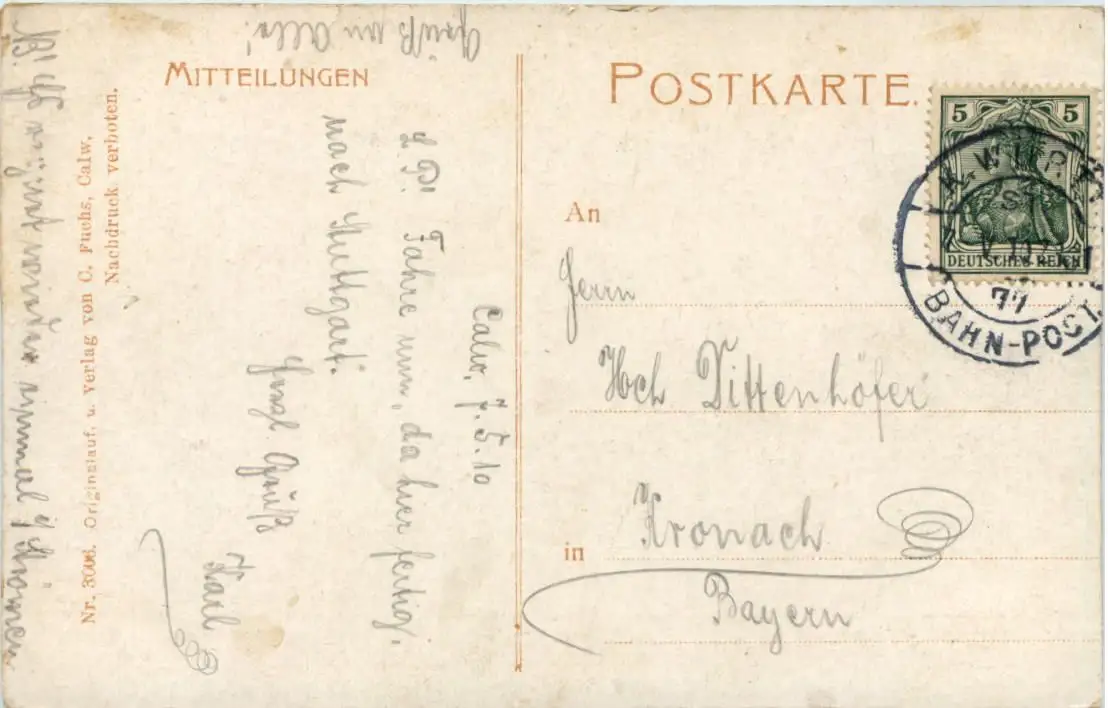 MITTEILUNGEN
POSTKARTE.
5 5
DEUTSCHES REICH
K. WÜRT
BAHN-POST
77
An
Herrn
Hch Dittenhöfer
in
Kronach
Bayern
Calw, 7.5.10
L. P!
Fahre nun, da hier fertig,
nach Stuttgart.
Gruß
Karl
Gruß an Alle!
wieder einmal
Nr. 3006. Originalauf. u. Verlag von C. Fuchs, Calw.
Nachdruck verboten.